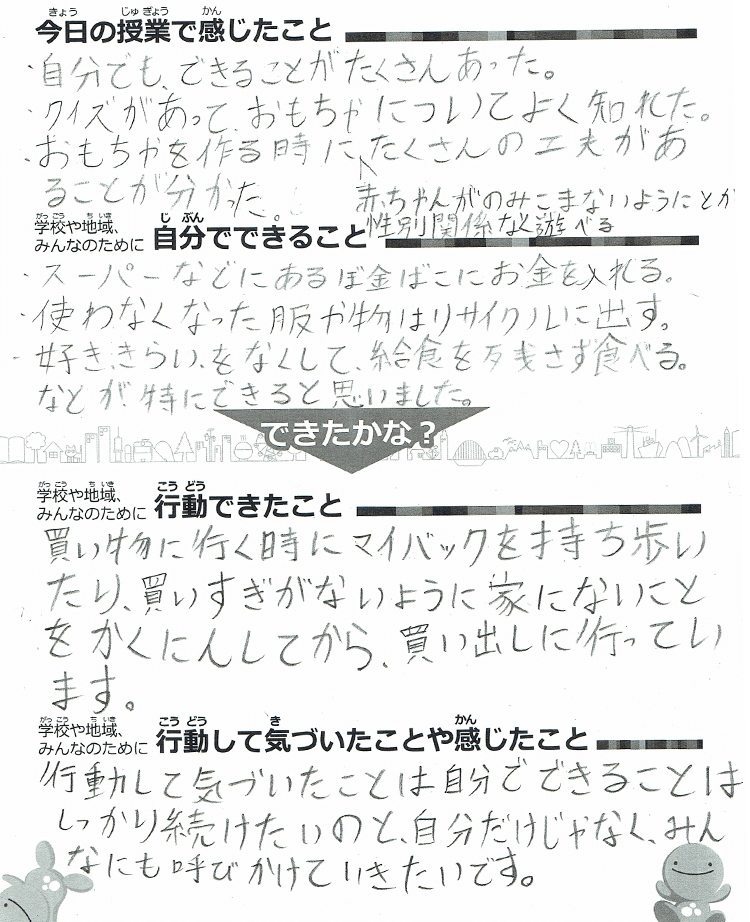 今日の授業で感じたこと
・自分でも、できることがたくさんあった。
・クイズがあって、おもちゃについてよく知れた。
・おもちゃを作る時に、たくさんの工夫があ
ることが分かった。
赤ちゃんがのみこまないようにとか
性別関係なく遊べる
学校や地域、
みんなのために 自分でできること
・スーパーなどにあるぼ金ばこにお金を入れる。
・使わなくなった服や物はリサイクルに出す。
・好き、きらい、をなくして、給食を残さず食べる。
などが、特にできると思いました。
できたかな？
学校や地域、
みんなのために 行動できたこと
買い物に行く時にマイバックを持ち歩い
たり、買いすぎがないように家にないこと
をかくにんしてから、買い出しに行ってい
ます。
学校や地域、
みんなのために 行動して気づいたことや感じたこと
行動して気づいたことは自分でできることは
しっかり続けたいのと、自分だけじゃなく、みん
なにも呼びかけていきたいです。